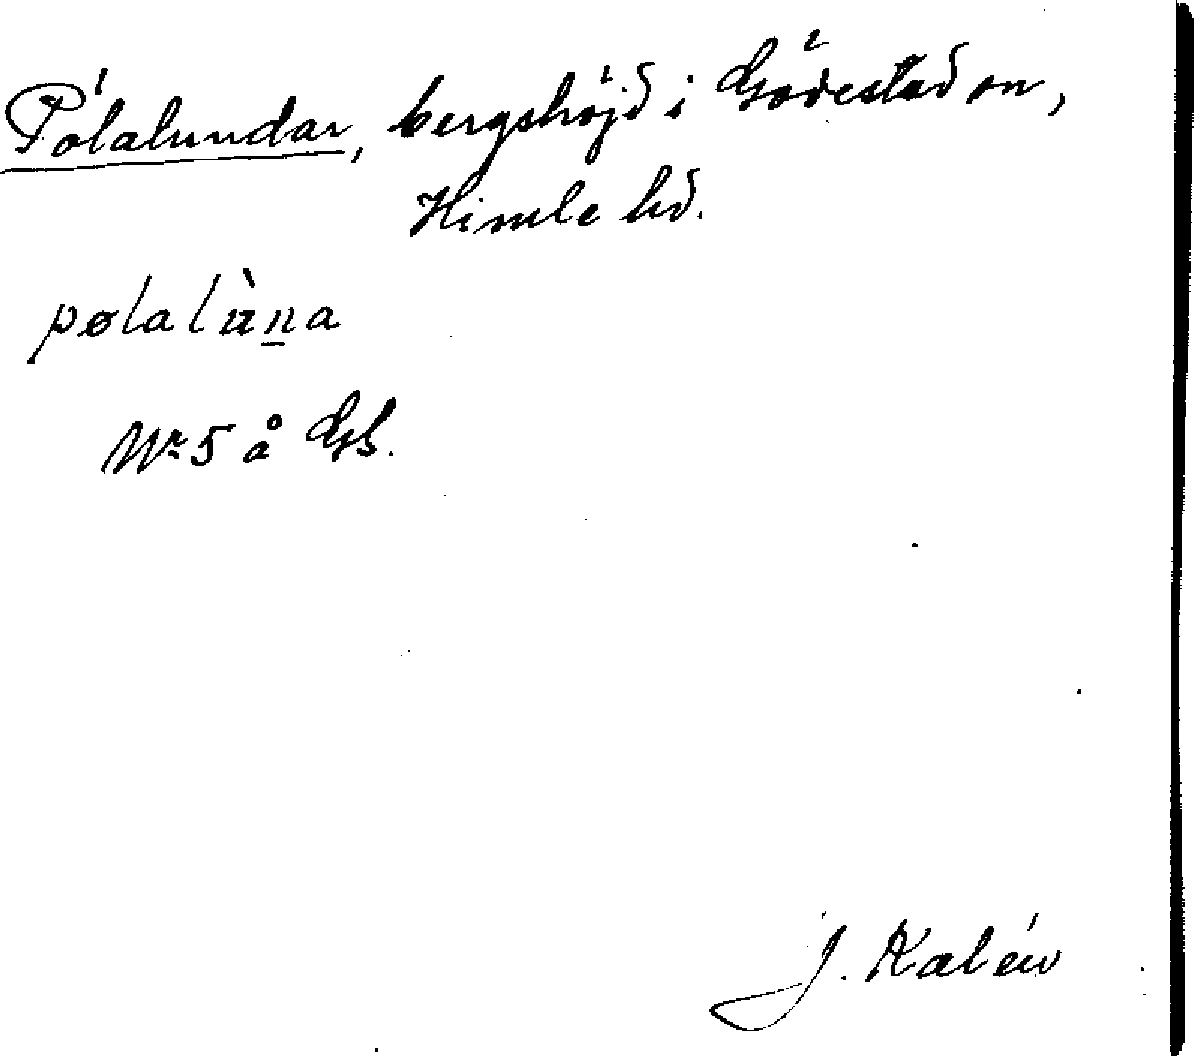 Pölalundar, bergshöjd i Gödestad sn,
Himle hd.
pølalùna
Nr 5 å GS.
J. Kalén